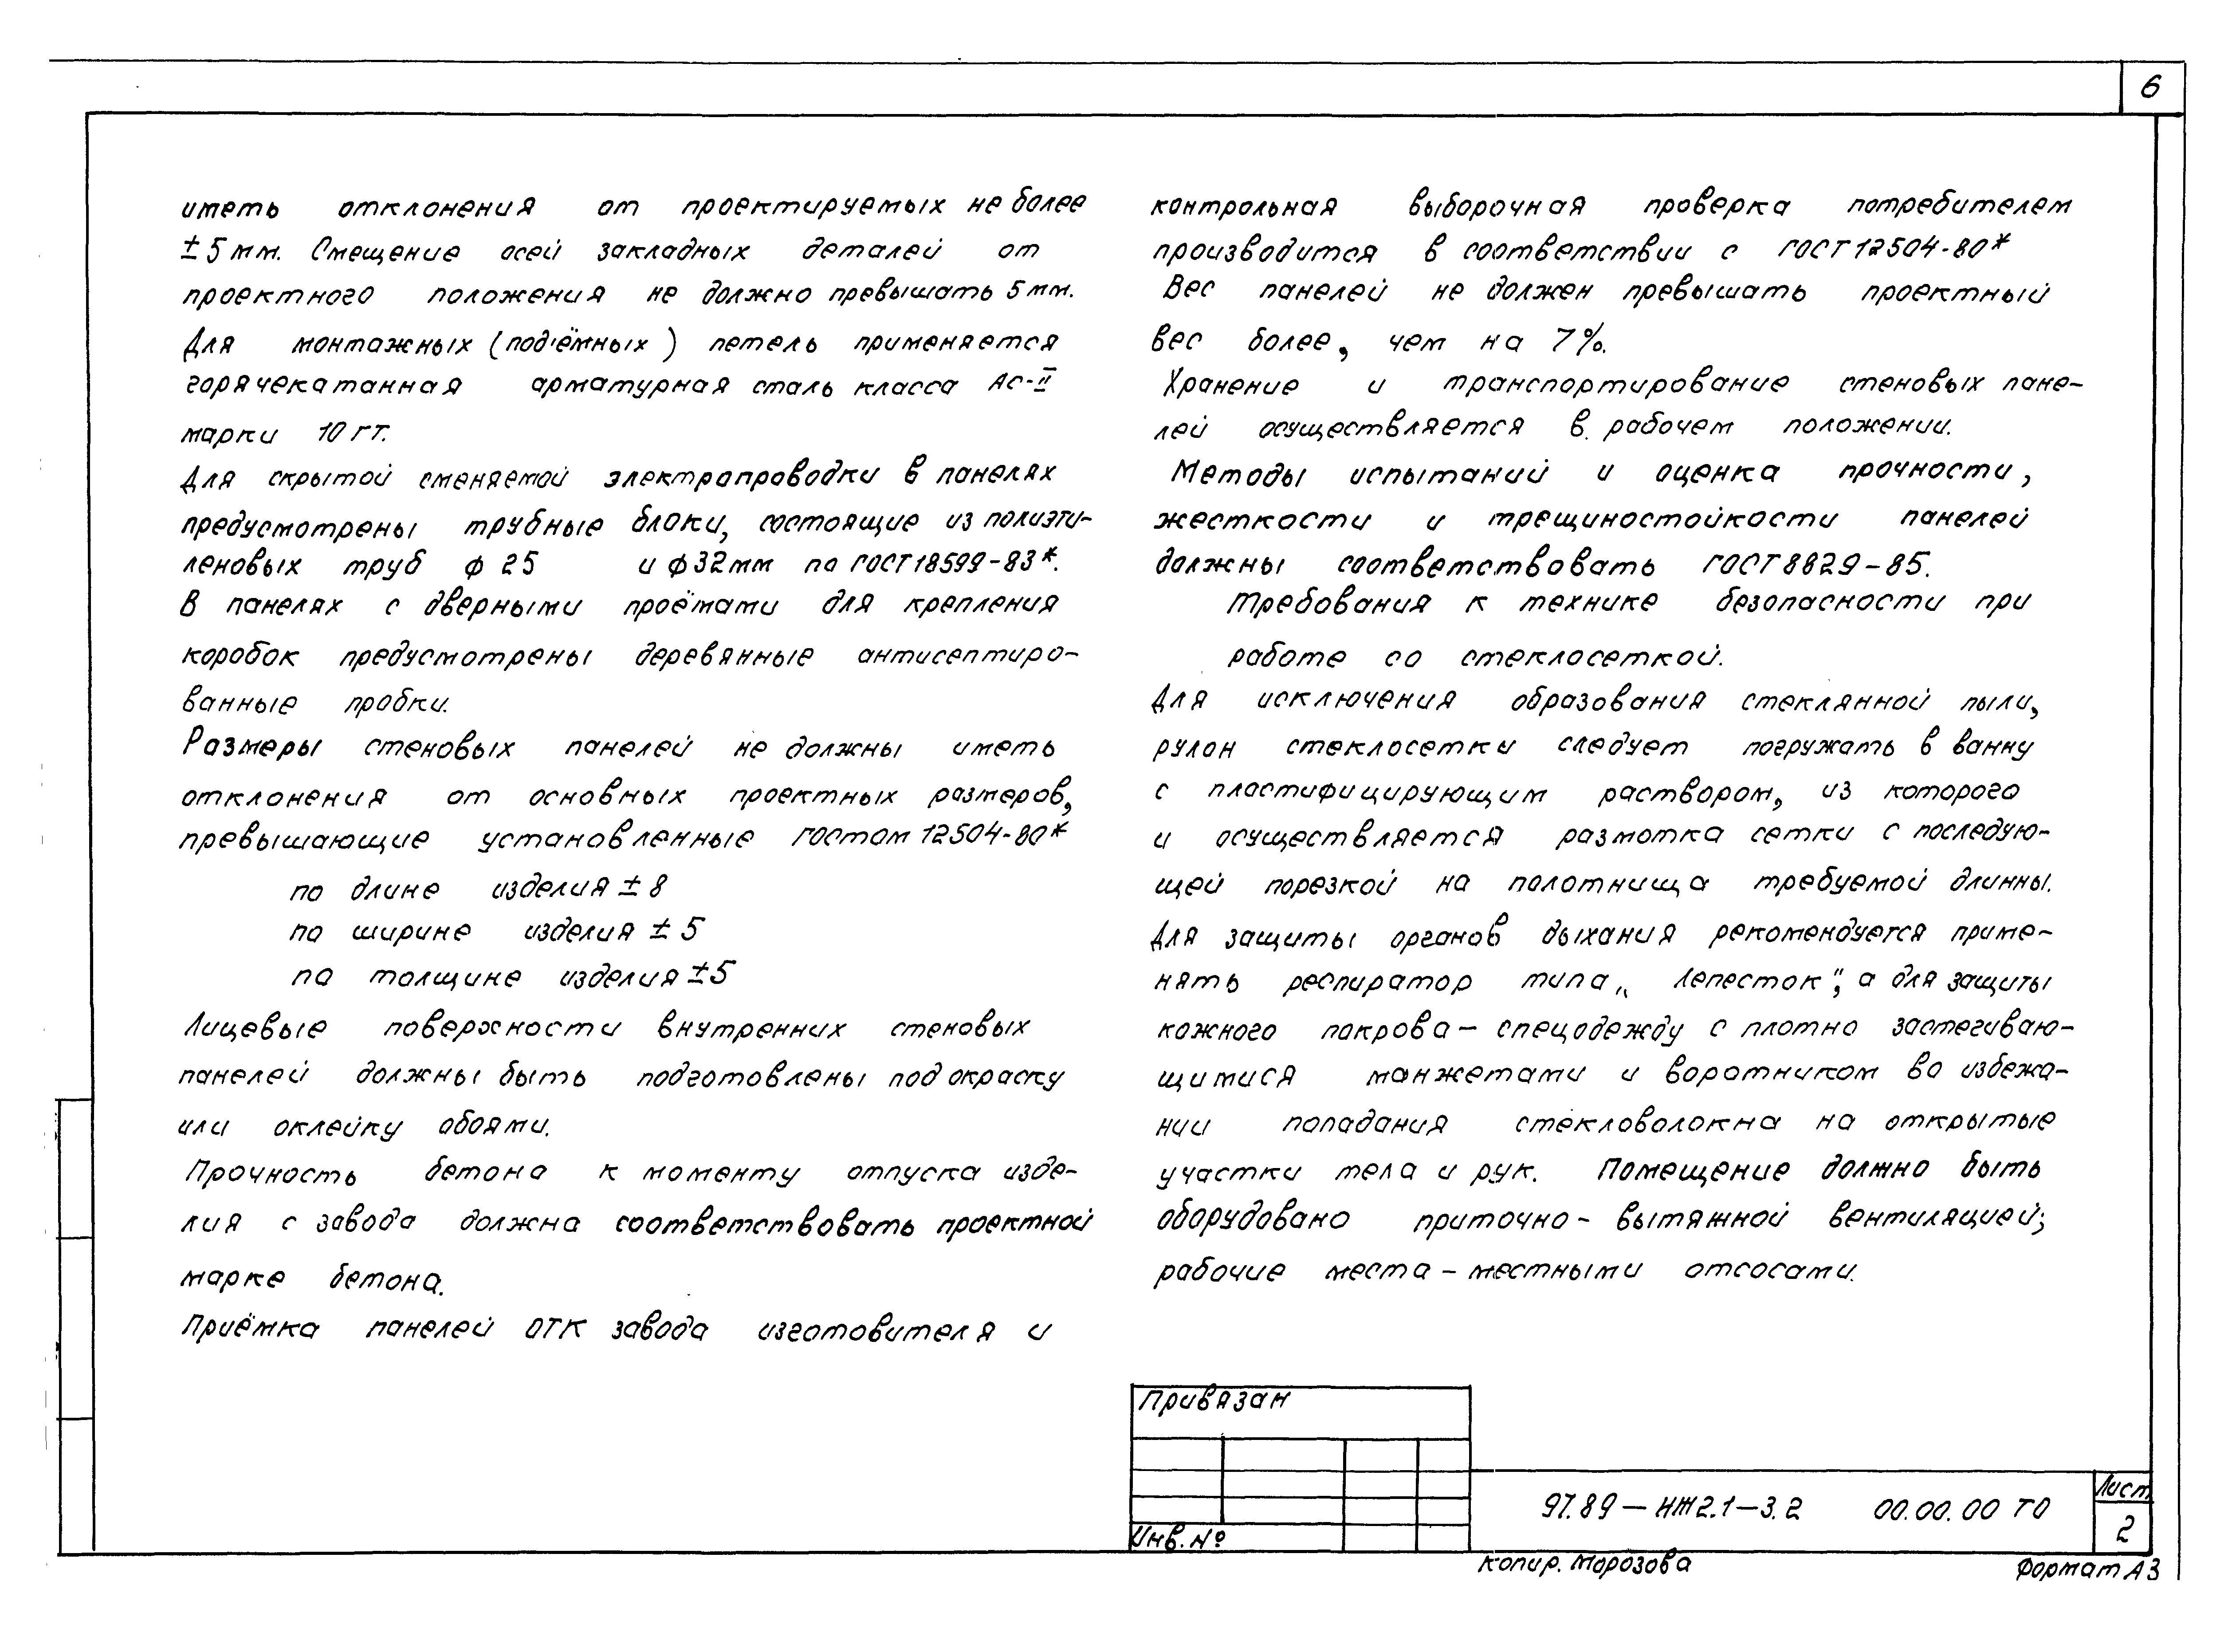 6
иметь отклонения от проектируемых не более
± 5 мм. Смещение осей закладных деталей от
проектного положения не должно превышать 5 мм.
Для монтажных (подъёмных) петель применяется
горячекатанная арматурная сталь класса Ас-II
марки 10 ГТ.
Для скрытой сменяемой электропроводки в панелях
предусмотрены трубные блоки, состоящие из полиэти-
леновых труб ф 25 и ф 32 мм по ГОСТ 18599-83*.
В панелях с дверными проёмами для крепления
коробок предусмотрены деревянные антисептиро-
ванные пробки.
Размеры стеновых панелей не должны иметь
отклонения от основных проектных размеров,
превышающие установленные ГОСТом 12504-80*
по длине изделия ± 8
по ширине изделия ± 5
по толщине изделия ± 5
Лицевые поверхности внутренних стеновых
панелей должны быть подготовлены под окраску
или оклейку обоями.
Прочность бетона к моменту отпуска изде-
лия с завода должна соответствовать проектной
марке бетона.
Приёмка панелей ОТК завода изготовителя и
контрольная выборочная проверка потребителем
производится в соответствии с ГОСТ 12504-80*
Вес панелей не должен превышать проектный
вес более, чем на 7%.
Хранение и транспортирование стеновых пане-
лей осуществляется в рабочем положении.
Методы испытаний и оценка прочности,
жесткости и трещиностойкости панелей
должны соответствовать ГОСТ 8829-85.
Требования к технике безопасности при
работе со стеклосеткой.
Для исключения образования стеклянной пыли,
рулон стеклосетки следует погружать в ванну
с пластифицирующим раствором, из которого
и осуществляется размотка сетки с последую-
щей порезкой на полотнища требуемой длинны.
Для защиты органов дыхания рекомендуется приме-
нять респиратор типа „Лепесток", а для защиты
кожного покрова - спецодежду с плотно застегиваю-
щимися манжетами и воротником во избежа-
нии попадания стекловолокна на открытые
участки тела и рук. Помещение должно быть
оборудовано приточно - вытяжной вентиляцией;
рабочие места - местными отсосами.
Привязан
Инв. №
97.89 - НЖ2.1-3.2 00.00.00 ТО
Лист
2
Копир. Морозова
Формат А3